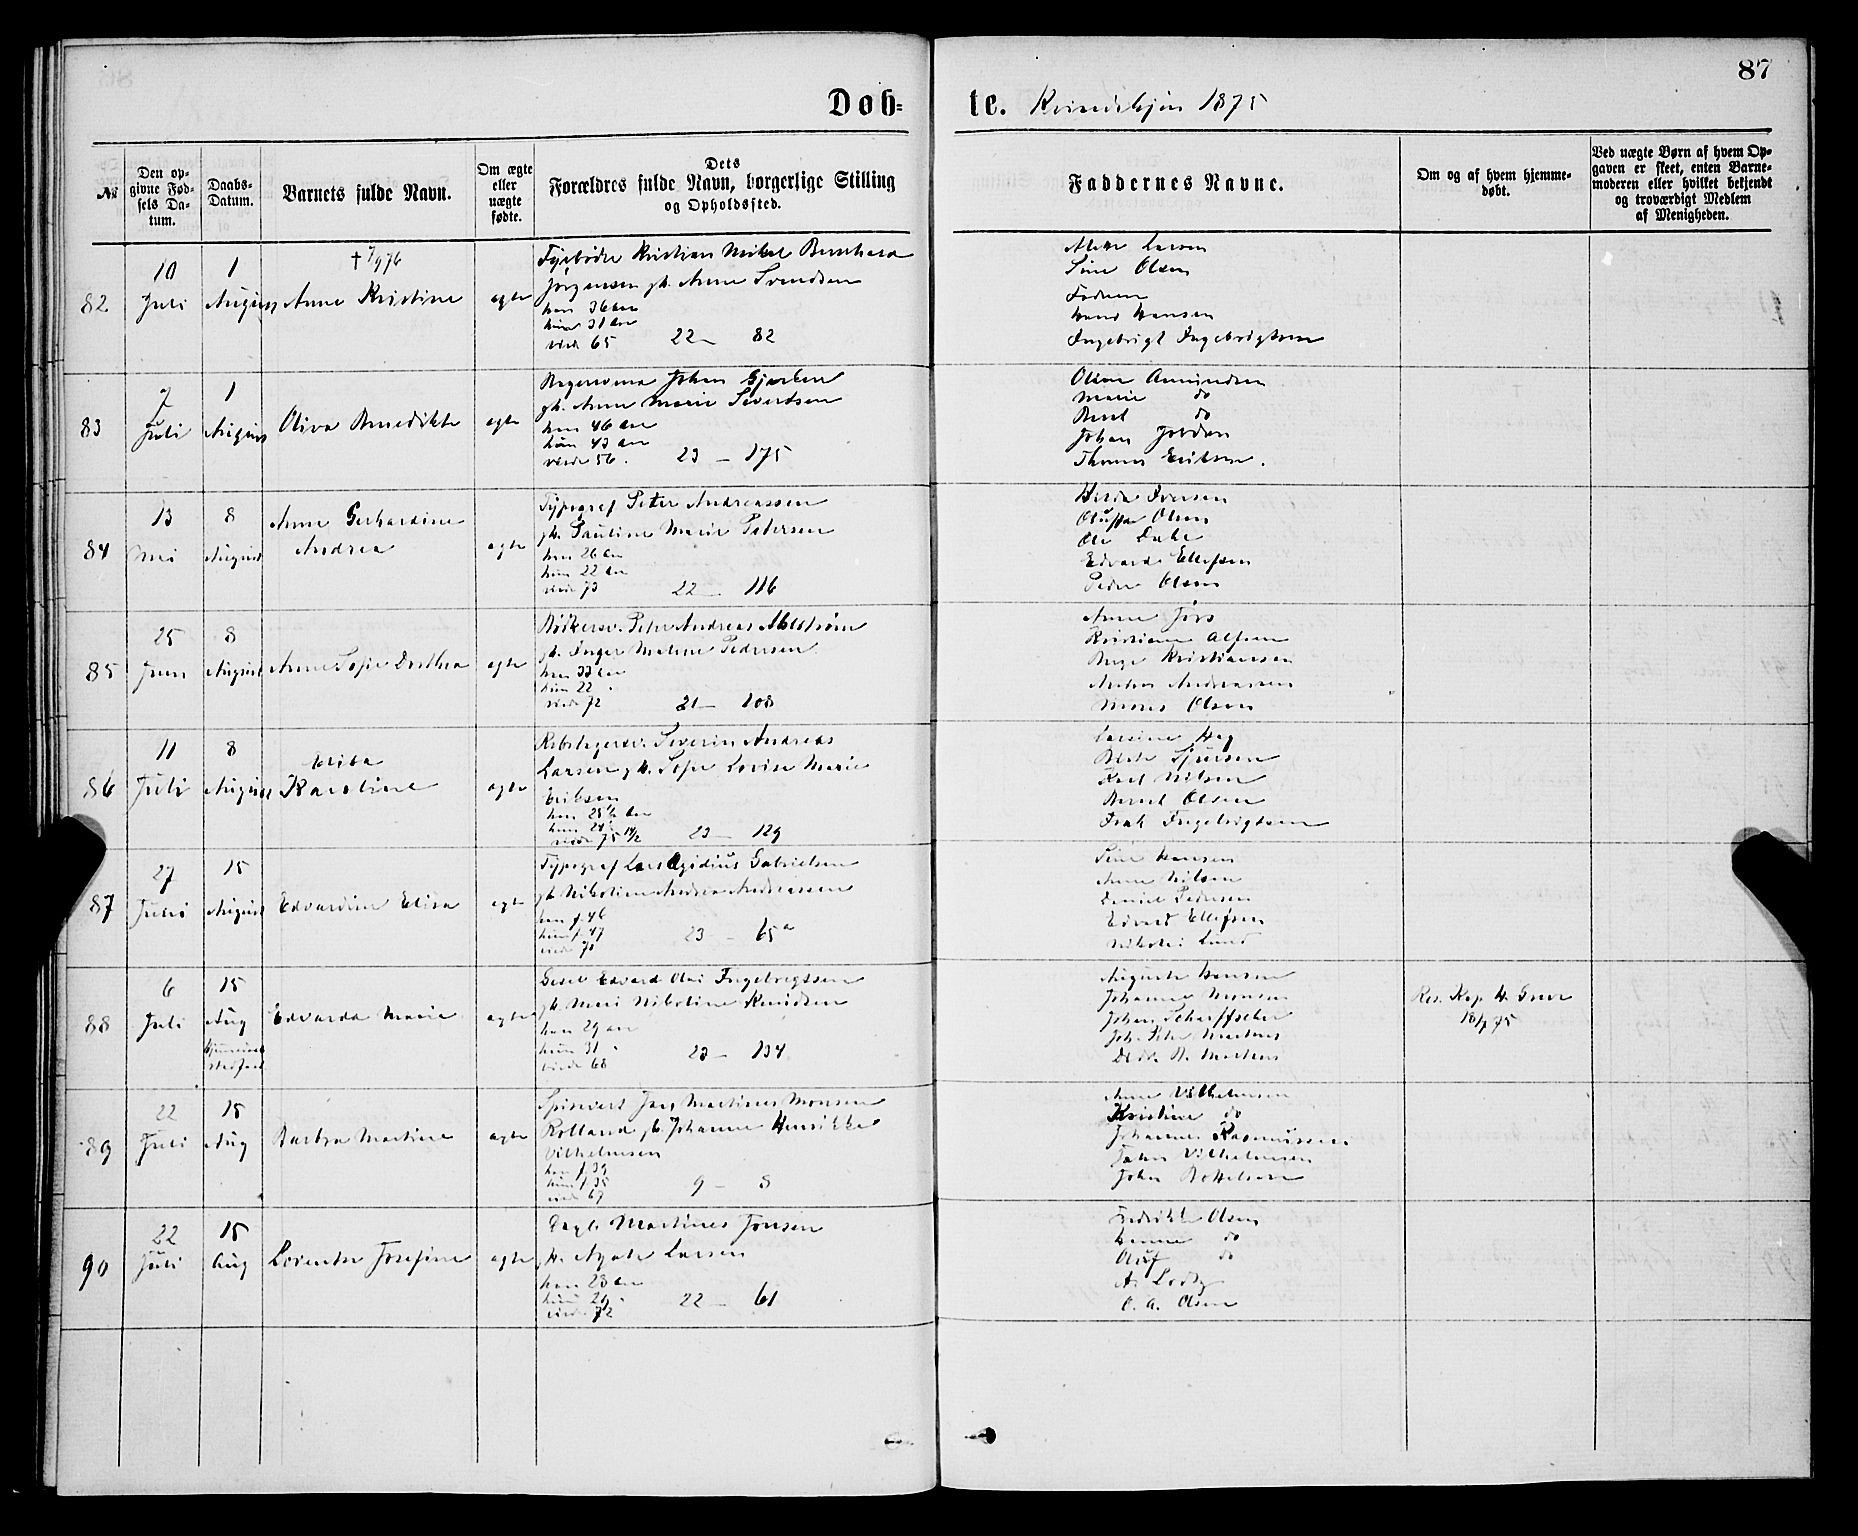 87
Døb= te. Kvindekjøn 1875
№
Den op-
givne Fød-
sels Da-
tum.
Daabs-
Datum.
Barnets fulde Navn.
Om ægte
eller
uægte
fødte.
Dets
Forældres fulde Navn, borgerlige Stilling
og Opholdssted.
Faddernes Navne.
Om og af hvem hjemme-
døbt.
Ved uægte Børn af hvem Op-
gaven er skeet, enten Barne-
moderen eller hvilket bekjendt
og troværdigt Medlem
af Menigheden.
82
10
Juli
1
August
Anne Kristine
ægte
Fyrbøder Kristian Mikal
Jørgensen gh. Anne Svendsen
han 36 Aar
hun 31 Aar
viede 65 22 - 82
Larsen
Sine Olsen
Faderen
Hans Hansen
Ingebrigt Ingebrigtsen
83
7
Juli
1
August
Oliva Benedikte
ægte
Bagersvend Johan
gh. Anne Marie Sivertsen
han 46 Aar
hun 43 Aar
viede 56. 23 - 175
Oline Amundsen
Marie do
Berut do
Johan
Thomas Eriksen.
84
13
Mai
8
August
Anne Gerhardine
Andrea
ægte
Typograf Peter Andreassen
gh. Pauline Marie Petersen
han 26 Aar
hun 22 Aar
viede 73 22 - 116
Iversen
Olsen
Ole Dahl
Edvard Ellefsen
Peder Olsen
85
25
Juni
8
August
Anne Sofie Dorthea
ægte
Bødkersv. Peter Andreas Ahlstrøm
gh. Inger Malene Pedersen
han 33 Aar
hun 22
viede 72 21 - 108
Anne
Kristiane
Kristiansen
Andreassen
Mons Olsen
86
11
Juli
8
August
Elida
Karoline
ægte
Rebslagersv. Severin Andreas
Larsen gh. Sofie Lovise Marie
Eriksen
han 25 1/2 Aar
viede 75 23 - 129
Karl Nilsen
Berut Olsen
Isak Ingebrigtsen
87
27
Juli
15
August
Edvardine Elisa
ægte
Typograf Lars Egidius Gabrielsen
gh. Nikoline Andrea Andreassen
han f. 46
hun f. 47
viede 70 23 - 65 a
Sine Hansen
Anne Nilsen
Daniel Pedersen
Edvard Ellefsen
Nikolai Lund
88
6
Juli
15
Aug
Edvarda Marie
ægte
Edvard Olai Ingebrigtsen
gh. Mari Nikoline Knudsen
han 29 Aar
hun 31
viede 68 23 - 134
Auguste Hansen
Johanne Monsen
Johan Scharffscher
Joh. Peter Martens
Martens
Res. Kap. H. Grove
18/7 75
89
22
Juli
15
Aug
Barbra Martine
ægte
Spisevert Martines Monsen
Rolland gh. Johanne Henrikke
Vilhelmsen
han f. 39
hun f. 35
viede 67 9 - 8
Anne Vilhelmsen
Kristine do
Johannes Rasmussen
Vilhelmsen
John
90
22
Juli
15
Aug
Lorentse Josefine
ægte
Dagl. Martines Jonsen
gh. Agate Larsen
han 23 Aar
hun 26
viede 72 22 - 61
Fredrikke Olsen
do
Oluf do
A. Lodtz
O. A. Olsen